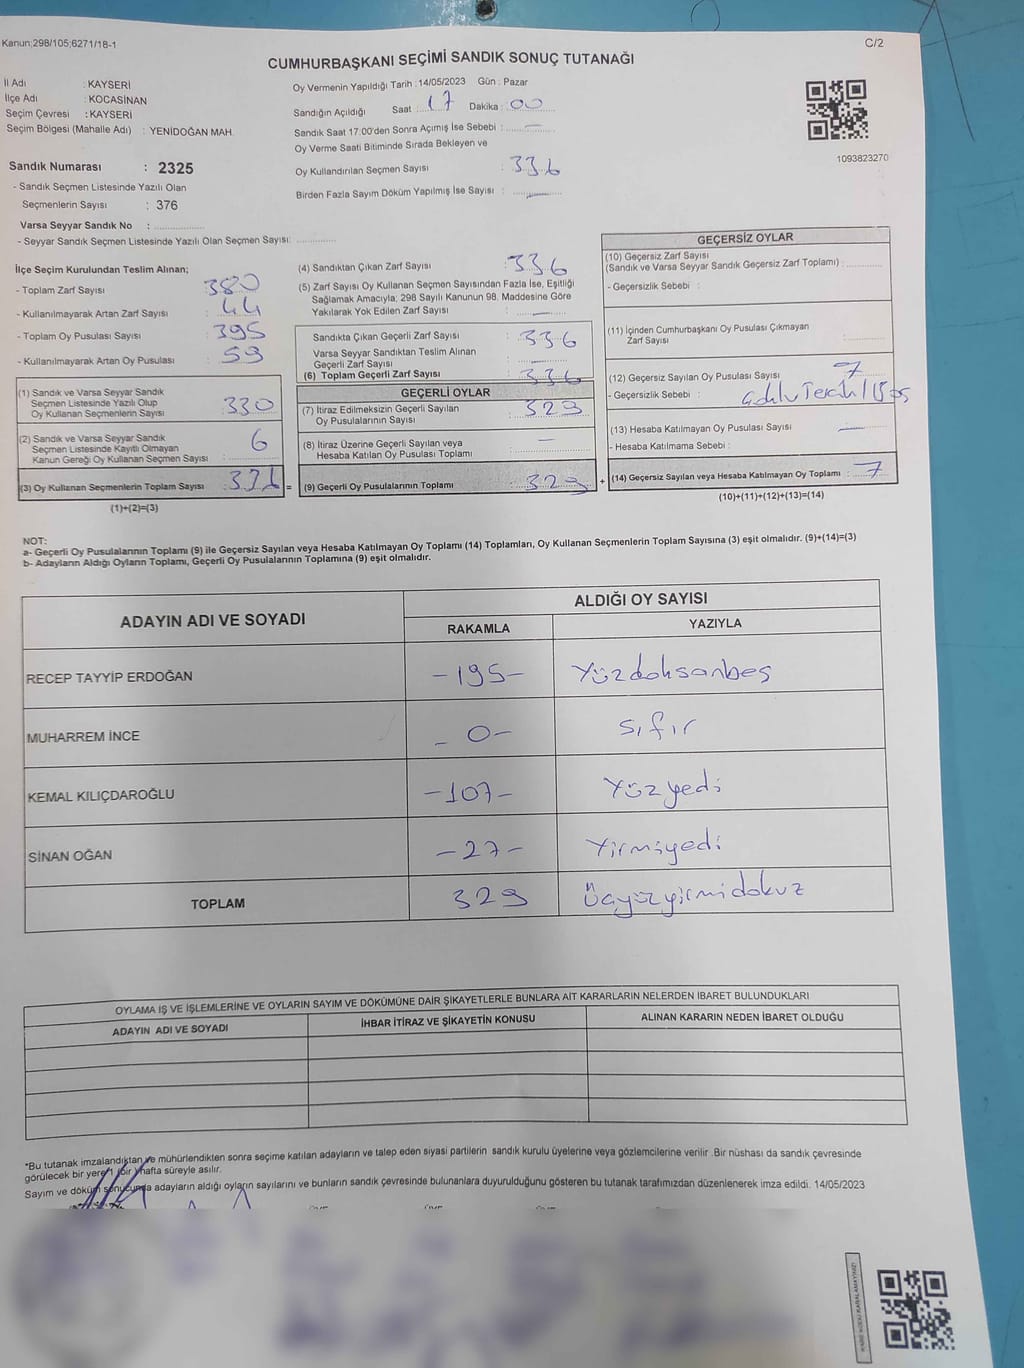 Kanun;298/105;6271/18-1
C/2
CUMHURBAŞKANI SEÇİMİ SANDIK SONUÇ TUTANAĞI
İl Adı : KAYSERİ
İlçe Adı : KOCASİNAN
Seçim Çevresi : KAYSERİ
Seçim Bölgesi (Mahalle Adı) : YENİDOĞAN MAH.
Sandık Numarası : 2325
- Sandık Seçmen Listesinde Yazılı Olan
Seçmenlerin Sayısı : 376
Varsa Seyyar Sandık No :
- Seyyar Sandık Seçmen Listesinde Yazılı Olan Seçmen Sayısı:
Oy Vermenin Yapıldığı Tarih : 14/05/2023 Gün : Pazar
Sandığın Açıldığı Saat : 17 Dakika : 00
Sandık Saat 17:00'den Sonra Açımış İse Sebebi : —
Oy Verme Saati Bitiminde Sırada Bekleyen ve
Oy Kullandırılan Seçmen Sayısı : 336
Birden Fazla Sayım Döküm Yapılmış İse Sayısı : —
1093823270
İlçe Seçim Kurulundan Teslim Alınan;
- Toplam Zarf Sayısı : 380
- Kullanılmayarak Artan Zarf Sayısı : 44
- Toplam Oy Pusulası Sayısı : 395
- Kullanılmayarak Artan Oy Pusulası : 59
(1) Sandık ve Varsa Seyyar Sandık
Seçmen Listesinde Yazılı Olup
Oy Kullanan Seçmenlerin Sayısı : 330
(2) Sandık ve Varsa Seyyar Sandık
Seçmen Listesinde Kayıtlı Olmayan
Kanun Gereği Oy Kullanan Seçmen Sayısı : 6
(3) Oy Kullanan Seçmenlerin Toplam Sayısı : 336 =
(1)+(2)=(3)
(4) Sandıktan Çıkan Zarf Sayısı : 336
(5) Zarf Sayısı Oy Kullanan Seçmen Sayısından Fazla İse, Eşitliği
Sağlamak Amacıyla; 298 Sayılı Kanunun 98. Maddesine Göre
Yakılarak Yok Edilen Zarf Sayısı : —
Sandıkta Çıkan Geçerli Zarf Sayısı : 336
Varsa Seyyar Sandıktan Teslim Alınan
Geçerli Zarf Sayısı : —
(6) Toplam Geçerli Zarf Sayısı : 336
GEÇERLİ OYLAR
(7) İtiraz Edilmeksizin Geçerli Sayılan
Oy Pusulalarının Sayısı : 329
(8) İtiraz Üzerine Geçerli Sayılan veya
Hesaba Katılan Oy Pusulası Toplamı : —
(9) Geçerli Oy Pusulalarının Toplamı : 329 +
GEÇERSİZ OYLAR
(10) Geçersiz Zarf Sayısı
(Sandık ve Varsa Seyyar Sandık Geçersiz Zarf Toplamı) :
- Geçersizlik Sebebi :
(11) İçinden Cumhurbaşkanı Oy Pusulası Çıkmayan
Zarf Sayısı :
(12) Geçersiz Sayılan Oy Pusulası Sayısı : 7
- Geçersizlik Sebebi :
(13) Hesaba Katılmayan Oy Pusulası Sayısı : —
- Hesaba Katılmama Sebebi :
(14) Geçersiz Sayılan veya Hesaba Katılmayan Oy Toplamı : 7
(10)+(11)+(12)+(13)=(14)
NOT:
a- Geçerli Oy Pusulalarının Toplamı (9) ile Geçersiz Sayılan veya Hesaba Katılmayan Oy Toplamı (14) Toplamları, Oy Kullanan Seçmenlerin Toplam Sayısına (3) eşit olmalıdır. (9)+(14)=(3)
b- Adayların Aldığı Oyların Toplamı, Geçerli Oy Pusulalarının Toplamına (9) eşit olmalıdır.
ADAYIN ADI VE SOYADI
ALDIĞI OY SAYISI
RAKAMLA YAZIYLA
RECEP TAYYİP ERDOĞAN -195- Yüzdoksanbeş
MUHARREM İNCE -0- Sıfır
KEMAL KILIÇDAROĞLU -107- Yüzyedi
SİNAN OĞAN -27- Yirmiyedi
TOPLAM 329 Üçyüzyirmidokuz
OYLAMA İŞ VE İŞLEMLERİNE VE OYLARIN SAYIM VE DÖKÜMÜNE DAİR ŞİKAYETLERLE BUNLARA AİT KARARLARIN NELERDEN İBARET BULUNDUKLARI
ADAYIN ADI VE SOYADI İHBAR İTİRAZ VE ŞİKAYETİN KONUSU ALINAN KARARIN NEDEN İBARET OLDUĞU
*Bu tutanak imzalandıktan ve mühürlendikten sonra seçime katılan adayların ve talep eden siyasi partilerin sandık kurulu üyelerine veya gözlemcilerine verilir .Bir nüshası da sandık çevresinde
görülecek bir yere 1 (bir) hafta süreyle asılır.
Sayım ve döküm sonucunda adayların aldığı oyların sayılarını ve bunların sandık çevresinde bulunanlara duyurulduğunu gösteren bu tutanak tarafımızdan düzenlenerek imza edildi. 14/05/2023